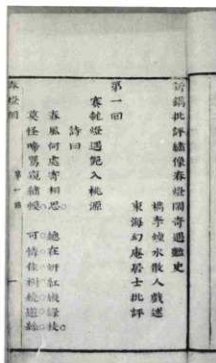 新鐫批評繡像春燈鬧奇遇艷史
檇李煙水散人戲述
東海幻庵居士批評
第一回
賽 燈遇艷入桃源
詩曰
春風何處寄相思 總在妍紅嫩綠枝
莫怪啼鶯窺繡幙 可憎 遊絲
春燈鬧 第一回 一